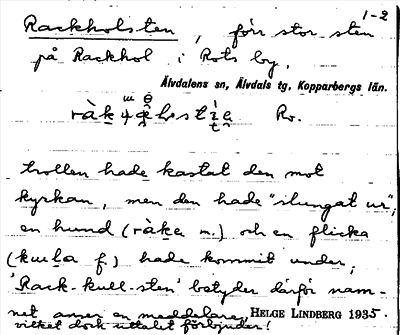 1-2
Rackholsten, förr stor sten
på Rackhol i Rots by.
Älvdalens sn, Älvdals tg, Kopparbergs län.
Ro.
trollen hade kastat den mot
kyrkan, men den hade "slungat ur";
en hund (ràkα m.) och en flicka
(kuḷḷa f.) hade kommit under;
'Rack-kull-sten' betyder därför nam-
net anser en meddelare, HELGE LINDBERG 1935.
vilket dock uttalet förbjuder!